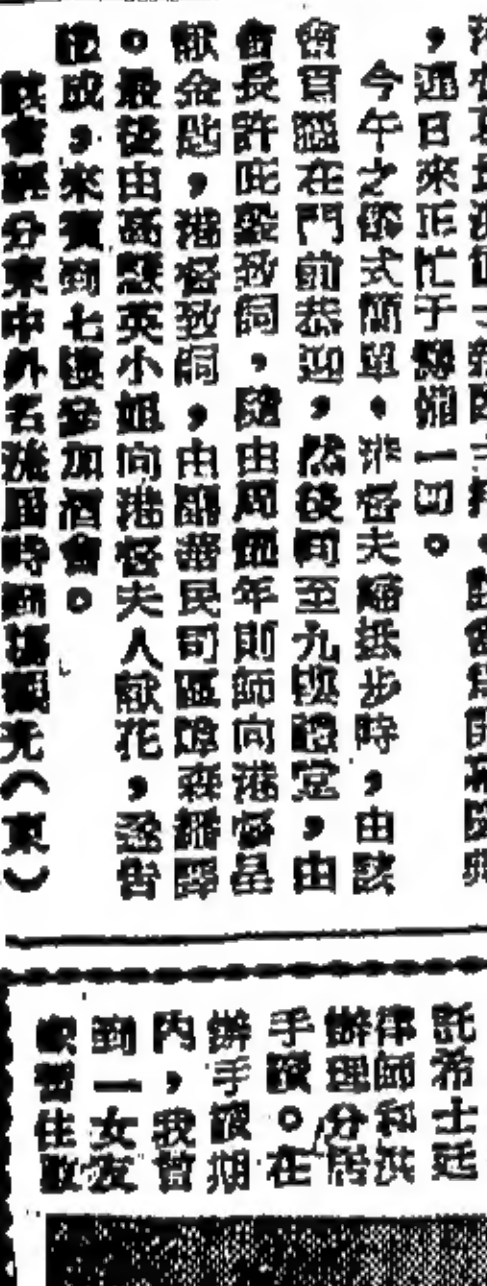 日來正忙于籌備一切。
今午之儀式簡單，港督夫婦抵步時，由該
會首在門前恭迎，然後同至九樓禮堂，由
會長許庇穀致詞，隨由周年則師向港督呈
獻金匙，港督致詞，由副華民司區煒森繙譯
。最後由高慧英小姐向港督夫人獻花，遂告
禮成，來賓到七樓參加酒會。
該會經分柬中外名流屆時到場觀光（東）
託希士廷
律師和洪
辦理分居
手續。在
辦手續期
內，我曾
到一女友
家暫住數